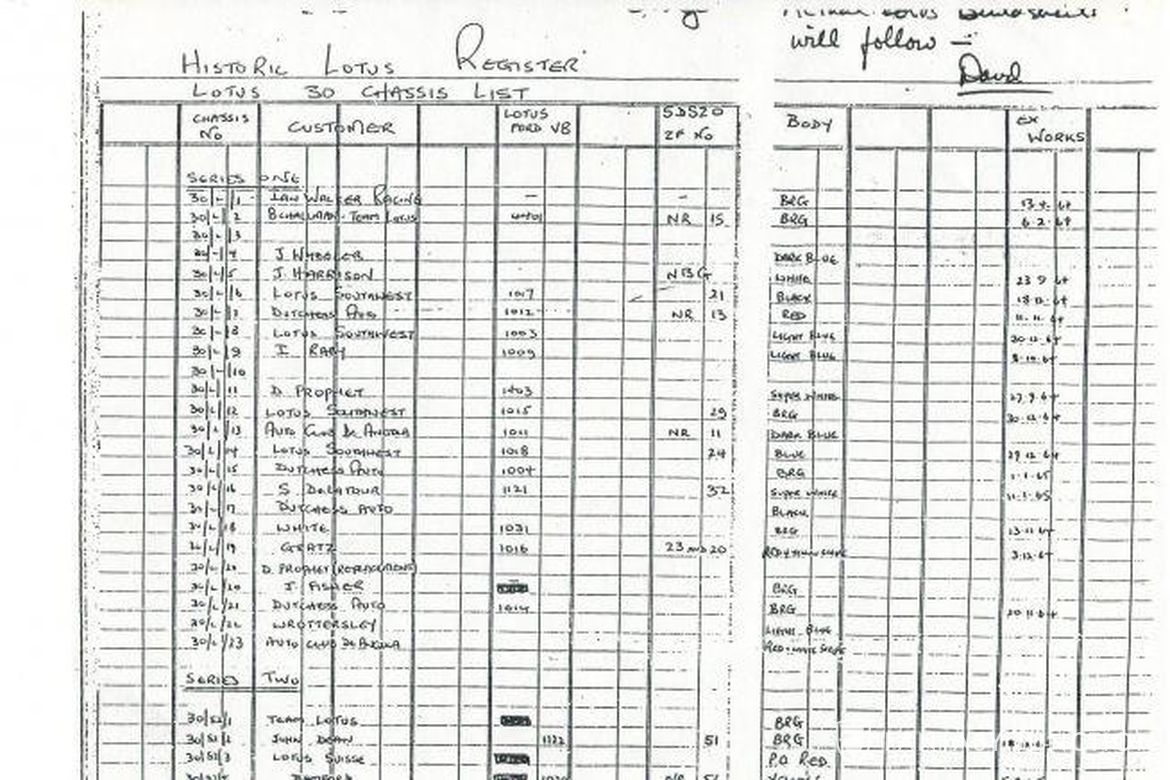 will follow -
David
HISTORIC LOTUS REGISTER
LOTUS 30 CHASSIS LIST
CHASSIS No CUSTOMER LOTUS FORD V8 5DS20 ZF No BODY EX WORKS
SERIES ONE
30/L/1 IAN WALKER RACING - - BRG 13.4.64
30/L/2 TEAM LOTUS NR 15 BRG 6.2.64
30/L/3
30/L/4 J. WHEELER DARK BLUE
30/L/5 J. HARRISON NBG WHITE 23.9.64
30/L/6 LOTUS SOUTHWEST 1017 21 BLACK
30/L/7 DUTCHESS AUTO 1012 NR 13 RED 11.11.64
30/L/8 LOTUS SOUTHWEST 1003 LIGHT BLUE
30/L/9 I. RABY 1009 LIGHT BLUE
30/L/10
30/L/11 D. PROPHET 1403 SUPER WHITE 27.9.64
30/L/12 LOTUS SOUTHWEST 1015 29 BRG 30.12.64
30/L/13 AUTO CLUB DE ANGOLA 1011 NR 11 DARK BLUE
30/L/14 LOTUS SOUTHWEST 1018 24 BLUE 29.12.64
30/L/15 DUTCHESS AUTO 1004 BRG 1.1.65
30/L/16 S. DELATOUR 1121 32 SUPER WHITE 11.1.65
30/L/17 DUTCHESS AUTO BLACK
30/L/18 WHITE 1031 BRG 13.11.64
30/L/19 GRATZ 1016 23 AND 20 3.12.64
30/L/20 D. PROPHET
30/L/20 J. FISHER BRG
30/L/21 DUTCHESS AUTO 1014 BRG 20.11.64
30/L/22 WROTTERSLEY LIGHT BLUE
30/L/23 AUTO CLUB DE ANGOLA RED + WHITE STRIPE
SERIES TWO
30/S2/1 TEAM LOTUS BRG
JOHN DEAN 1122 51 BRG
LOTUS SUISSE P.O. RED